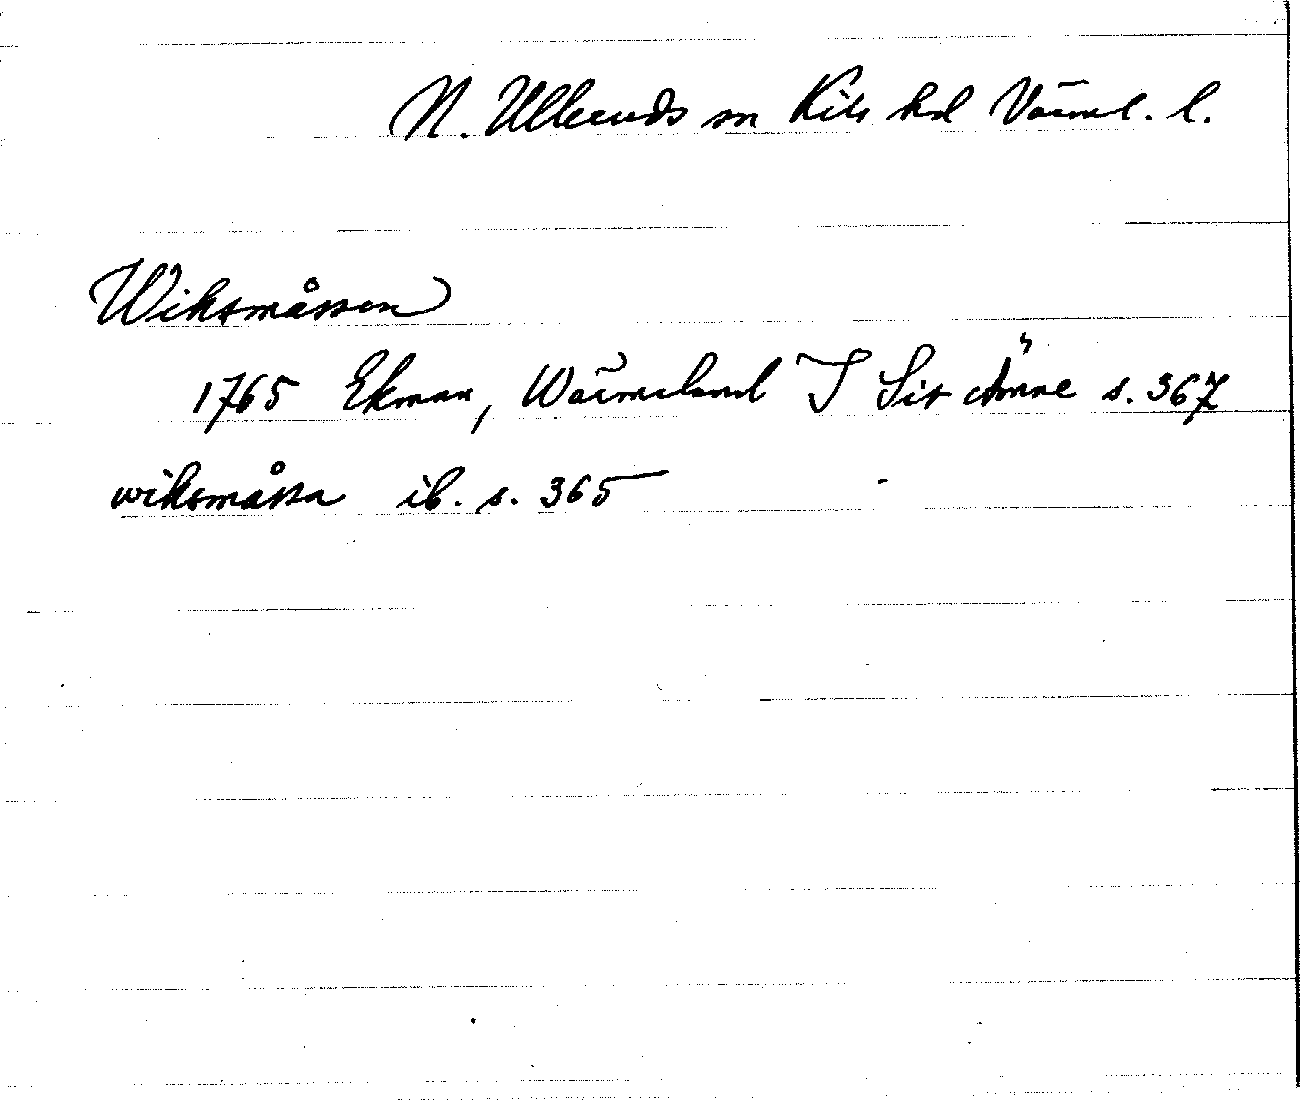 N. Ulleruds sn Kils hd Värml. l.
Wiksmåssen
1765 Ekman, Wärmeland I Sit Ämne s. 367
wiksmåssa ib. s. 365